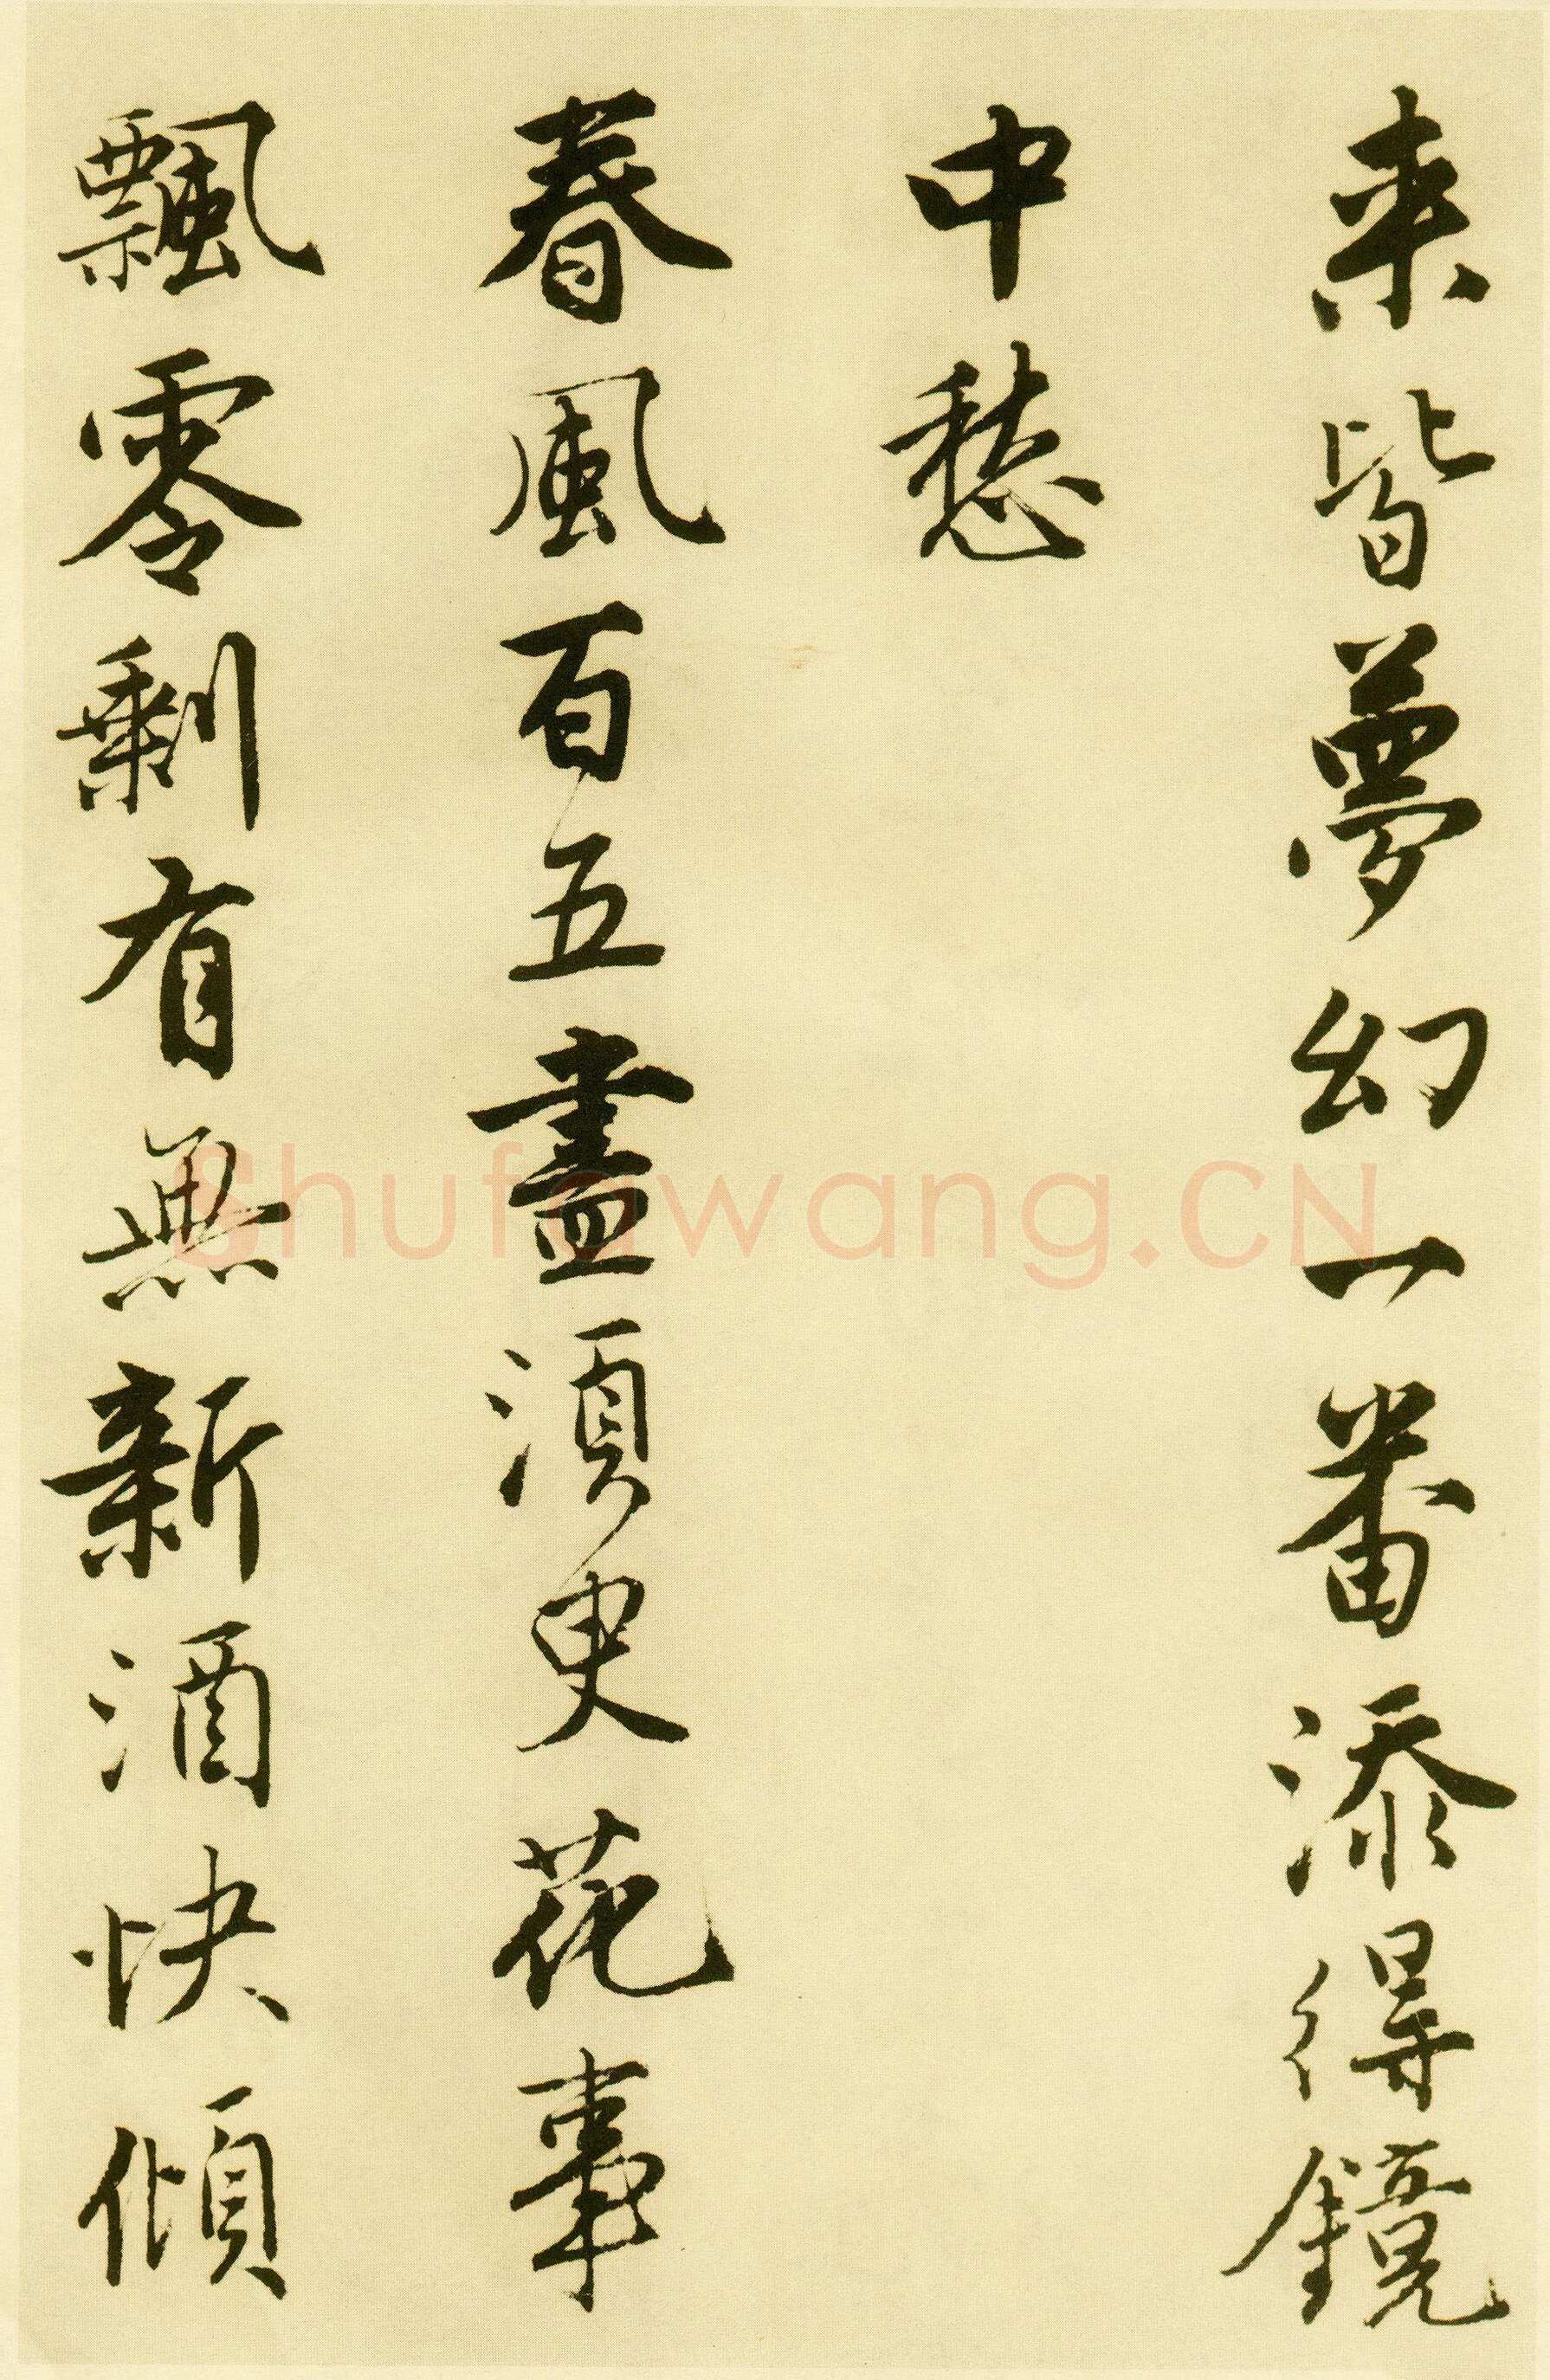 来皆夢幻一番添得鏡
中愁
春風百五盡須臾花事
飄零剩有無新酒快傾
Shufawang.CN